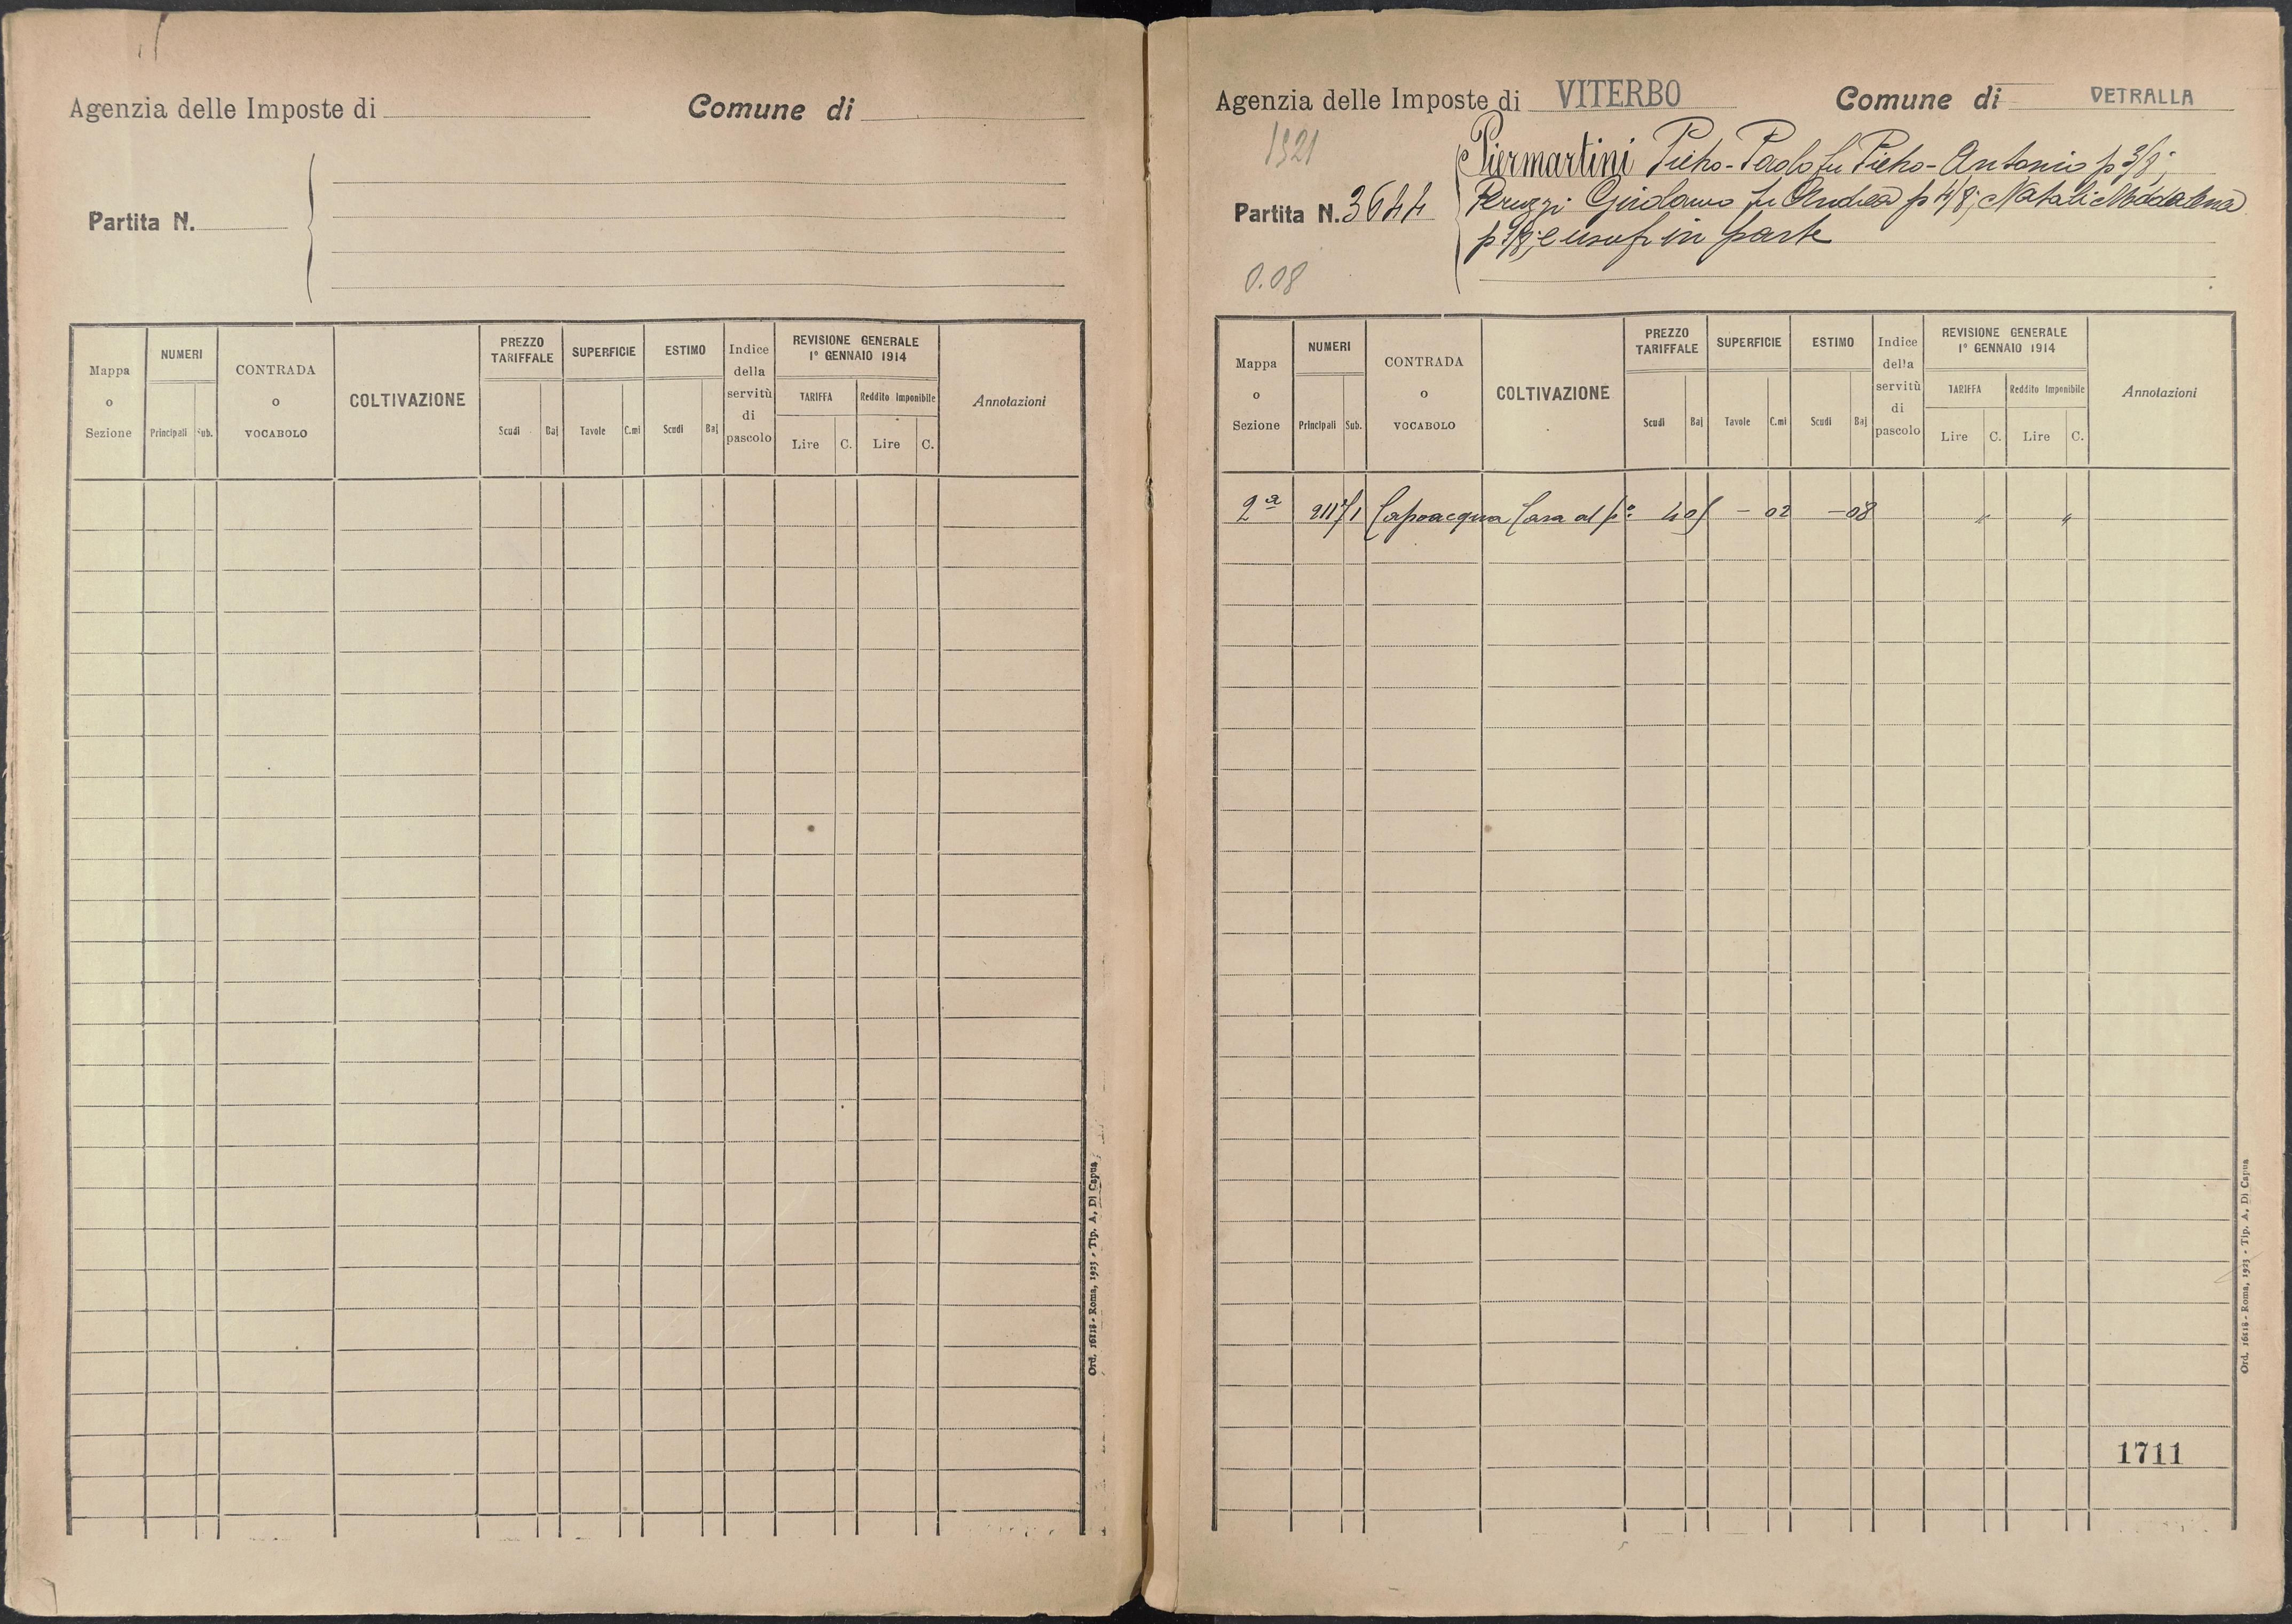 Agenzia delle Imposte di
Comune di
Partita N.
Mappa o Sezione
NUMERI
Principali
Sub.
CONTRADA o VOCABOLO
COLTIVAZIONE
PREZZO TARIFFALE
Scudi
Baj
SUPERFICIE
Tavole
C.mi
ESTIMO
Scudi
Baj
Indice della servitù di pascolo
REVISIONE GENERALE
1° GENNAIO 1914
TARIFFA
Reddito Imponibile
Lire
C.
Lire
C.
Annotazioni
Ord. 16118 - Roma, 1923 - Tip. A. Di Capua
Agenzia delle Imposte di VITERBO
Comune di VETRALLA
1321
Partita N. 3644
0.08
Piermartini Pietro-Paolo fu Pietro-Antonio p 3/8;
Peruzzi Girolamo fu Andrea p 4/8; Natali Maddalena
p 1/8; e usuf. in parte
Mappa o Sezione
NUMERI
Principali
Sub.
CONTRADA o VOCABOLO
COLTIVAZIONE
PREZZO TARIFFALE
Scudi
Baj
SUPERFICIE
Tavole
C.mi
ESTIMO
Scudi
Baj
Indice della servitù di pascolo
REVISIONE GENERALE
1° GENNAIO 1914
TARIFFA
Reddito Imponibile
Lire
C.
Lire
C.
Annotazioni
2ª Capoacqua Casa al pº - 02 - 08 " "
1711
Ord. 16118 - Roma, 1923 - Tip. A. Di Capua